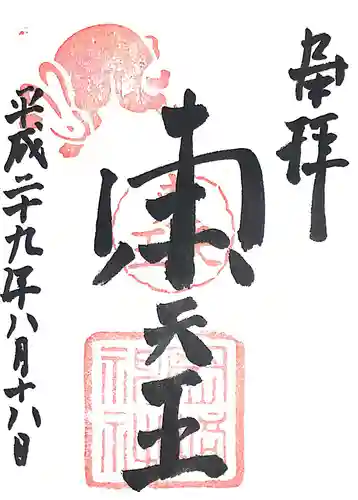 奉拝
東天王
平成二十九年八月十八日
岡崎
神社